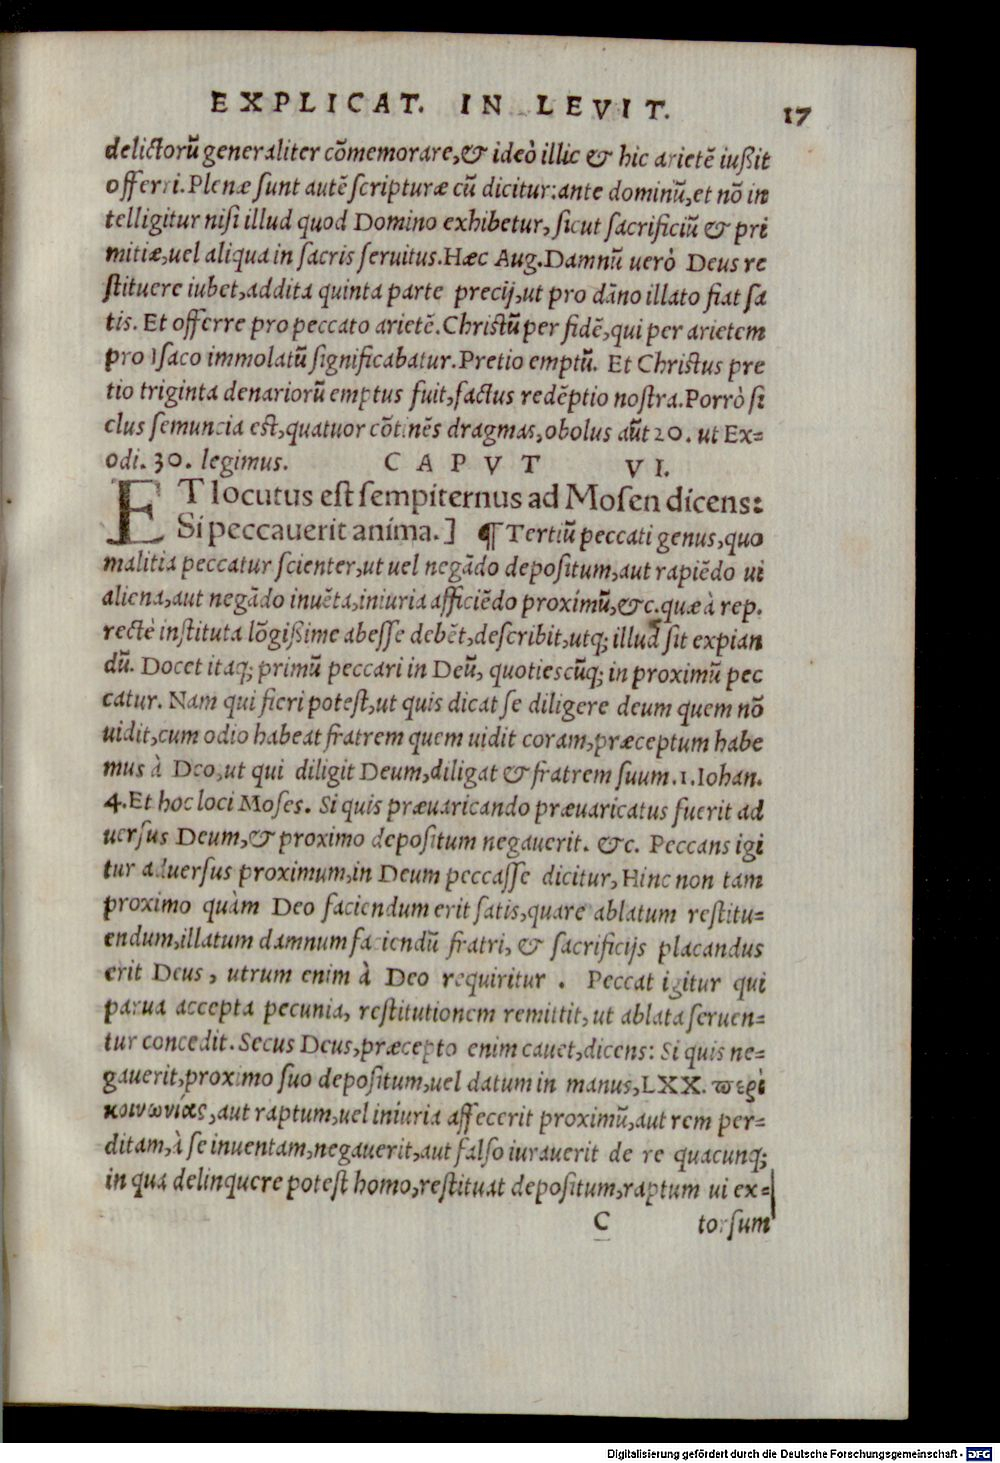 EXPLICAT. IN LEVIT. 17
delictorū generaliter cōmemorare,& ideò illic & hic arietē iußit
offerri. Plenæ sunt autē scripturæ cū dicitur: ante dominū, et nō in
telligitur nisi illud quod Domino exhibetur, sicut sacrificiū & pri
mitiæ,uel aliqua in sacris seruitus. Hæc Aug. Damnū uerò Deus re
stituere iubet,addita quinta parte precij,ut pro dāno illato fiat sa
tis. Et offerre pro peccato arietē. Christū per fidē,qui per arietem
pro Isaco immolatū significabatur. Pretio emptū. Et Christus pre
tio triginta denariorū emptus fuit,factus redēptio nostra. Porrò si
clus semuncia est,quatuor cōtinēs dragmas,obolus aūt 20. ut Ex=
odi. 30. legimus. CAPVT VI.
ET locutus est sempiternus ad Mosen dicens:
Si peccauerit anima.] ¶ Tertiū peccati genus,quo
malitia peccatur scienter,ut uel negādo depositum,aut rapiēdo ui
aliena,aut negādo inuēta,iniuria afficiēdo proximū,&c. quæ à rep.
rectè instituta lōgißime abesse debēt,describit,utq; illud sit expian
dū. Docet itaq; primū peccari in Deū, quotiescūq; in proximū pec
catur. Nam qui fieri potest,ut quis dicat se diligere deum quem nō
uidit,cum odio habeat fratrem quem uidit coram,præceptum habe
mus à Deo,ut qui diligit Deum,diligat & fratrem suum. 1. Iohan.
4. Et hoc loci Moses. Si quis præuaricando præuaricatus fuerit ad
uersus Deum,& proximo depositum negauerit. &c. Peccans igi
tur aduersus proximum,in Deum peccasse dicitur, Hinc non tam
proximo quàm Deo faciendum erit satis,quare ablatum restitu=
endum,illatum damnum faciendū fratri, & sacrificijs placandus
erit Deus, utrum enim à Deo requiritur. Peccat igitur qui
parua accepta pecunia, restitutionem remittit, ut ablata seruen=
tur concedit. Secus Deus,præcepto enim cauet,dicens: Si quis ne=
gauerit,proximo suo depositum,uel datum in manus, LXX. περὶ
κοινωνίας,aut raptum,uel iniuria affecerit proximū,aut rem per=
ditam,à se inuentam,negauerit,aut falso iurauerit de re quacunq;
in qua delinquere potest homo,restituat depositum,raptum ui ex=
C torsum
Digitalisierung gefördert durch die Deutsche Forschungsgemeinschaft - DFG